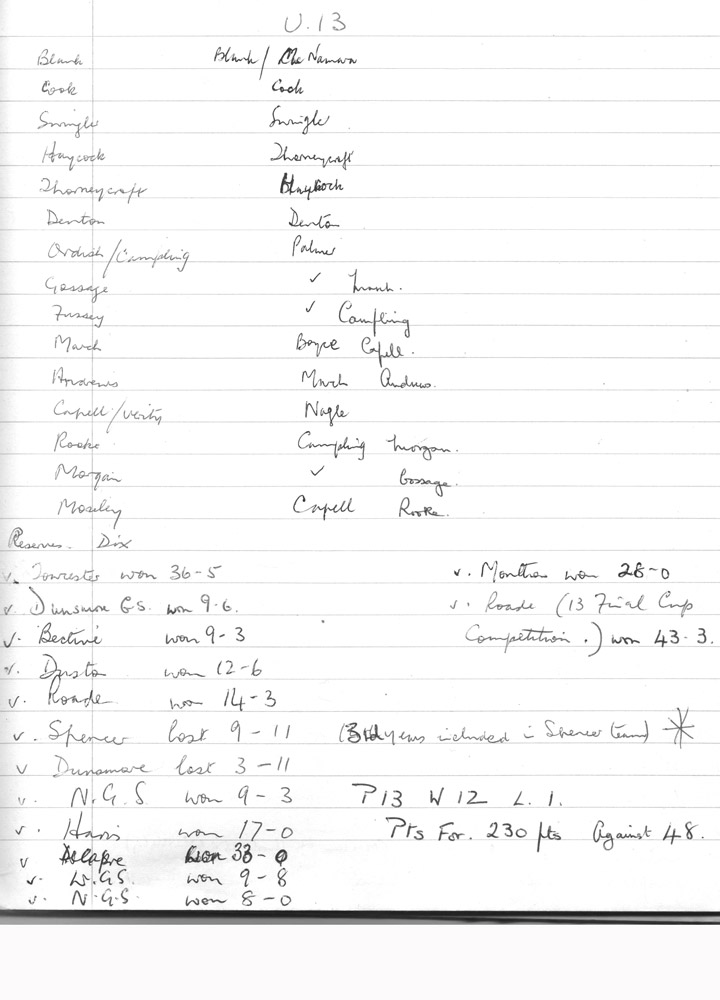 U.13
Blank Blank / McNamara
Cook Cook
Swingle Swingle
Haycock Thorneycraft
Thorneycraft Haycock
Denton Denton
Ordish/Campling Palmer
Gossage ✓
Fussey ✓ Campling
March Boyce Capell.
Andrews March Andrews.
Capell/Verity Nagle
Rooke Campling Morgan.
Morgan ✓ Gossage.
Moseley Capell Rooke.
Reserves. Dix
v. Towcester won 36-5 v. Moulton won 28-0
v. Dunsmore G.S. won 9-6. v. Roade (13 Final Cup
v. Bective won 9-3 Competition.) won 43-3.
v. Duston won 12-6
v. Roade won 14-3
v. Spencer lost 9-11 (3rd years included in Spencer team) *
v Dunsmore lost 3-11
v. N.G.S. won 9-3 P13 W12 L.1.
v. Harris won 17-0 Pts For. 230 pts Against 48.
v Delapre won 33-0
v. W.G.S. won 9-8
v. N.G.S. won 8-0